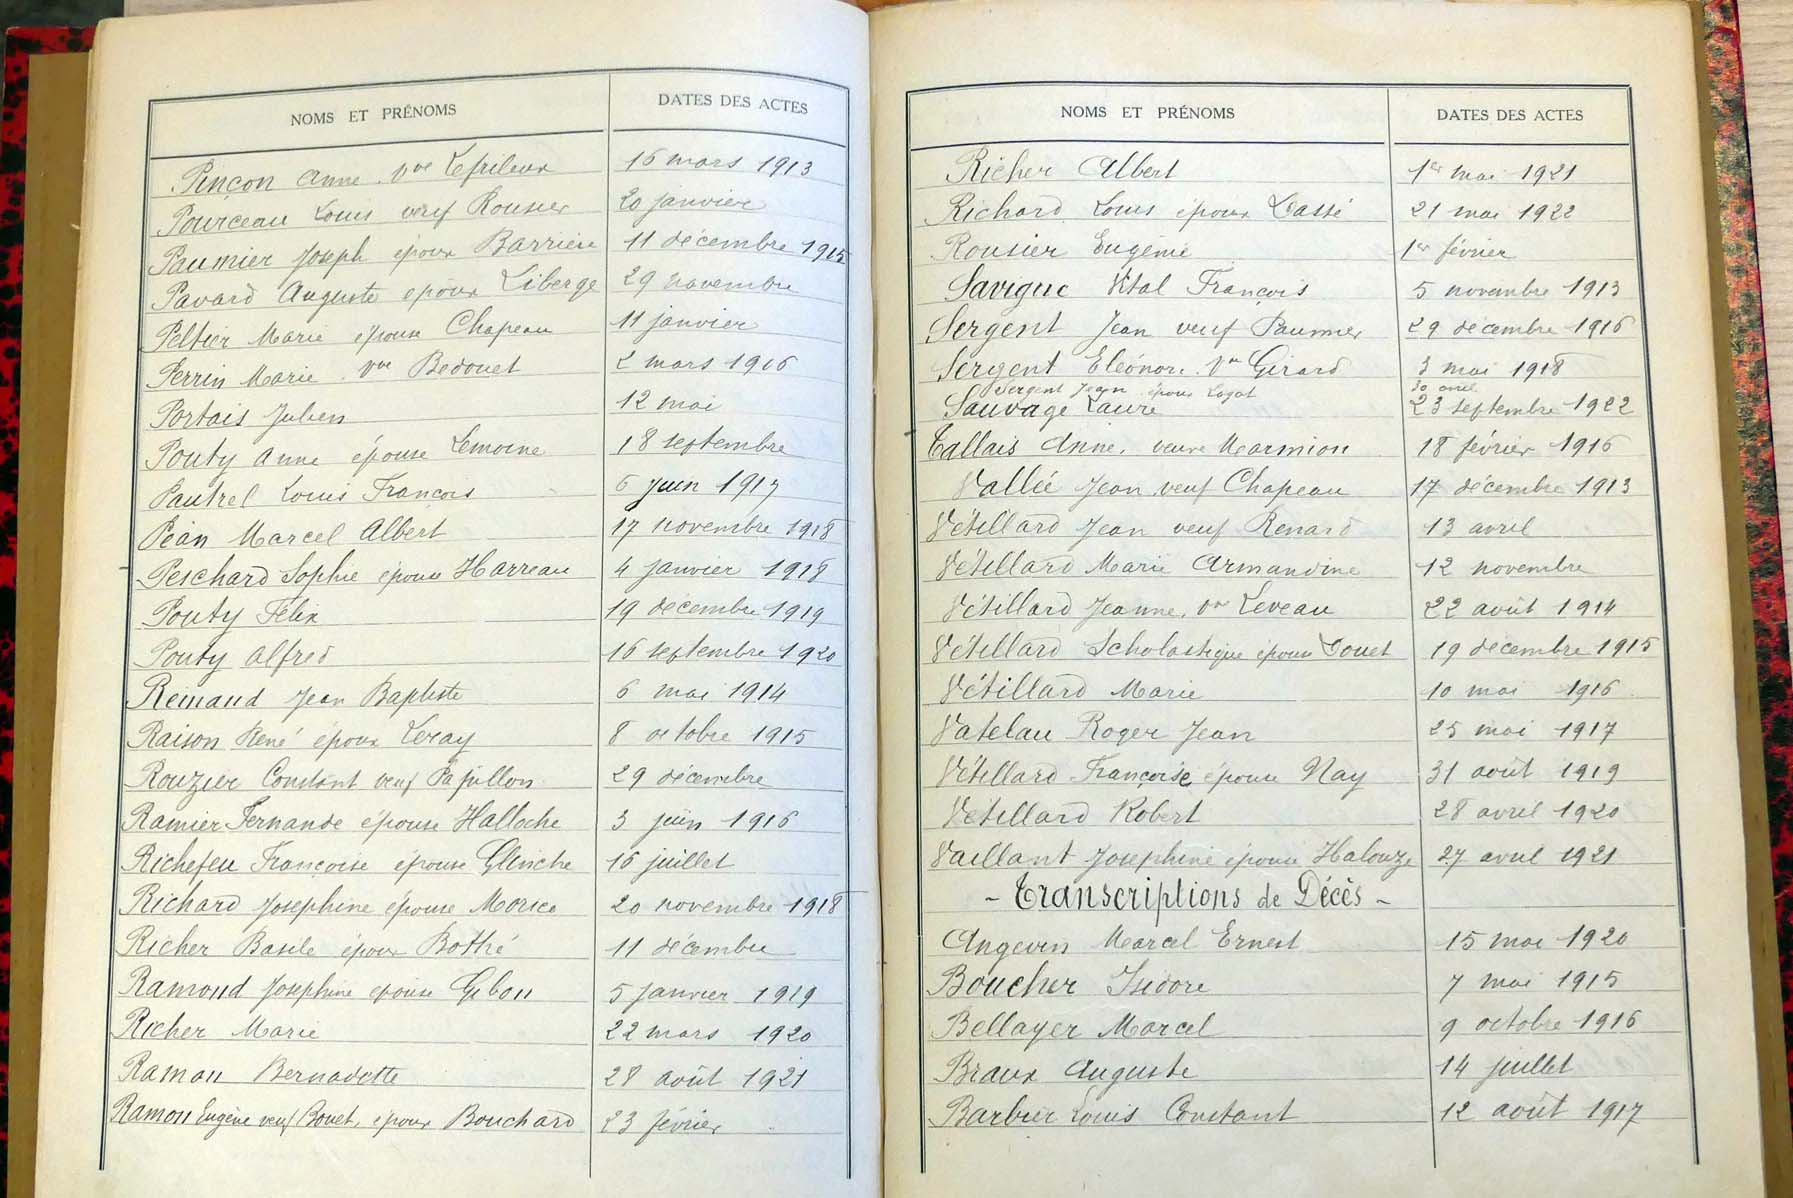 NOMS ET PRÉNOMS DATES DES ACTES
Pinçon Anne Vve Lefrileux 16 mars 1913
Pourceau Louis veuf Rousier 20 janvier
Paumier Joseph époux Barrière 11 décembre 1915
Pavard Auguste époux Liberge 29 novembre
Peltier Marie épouse Chapeau 11 janvier
Perrin Marie Vve Bedouet 2 mars 1916
Portais Julien 12 mai
Pouty Anne épouse Lemoine 18 septembre
Pautrel Louis François 6 juin 1917
Péan Marcel Albert 17 novembre 1918
Peschard Sophie épouse Harreau 4 janvier 1918
Pouty Félix 19 décembre 1919
Pouty Alfred 16 septembre 1920
Reinaud Jean Baptiste 6 mai 1914
Raison René époux Leray 8 octobre 1915
Rouzier Constant veuf Papillon 29 décembre
Ramier Fernande épouse Halloche 3 juin 1916
Richefeu Françoise épouse Glinche 16 juillet
Richard Joséphine épouse Morice 20 novembre 1918
Richer Basile époux Bothé 11 décembre
Ramond Joséphine épouse Gibon 5 janvier 1919
Richer Marie 22 mars 1920
Ramon Bernadette 28 août 1921
Ramon Eugène veuf Bouet, époux Bouchard 23 février
NOMS ET PRÉNOMS DATES DES ACTES
Richer Albert 1er mai 1921
Richard Louis époux Dassé 21 mai 1922
Rousier Eugénie 1er février
Savignc Vital François 5 novembre 1913
Sergent Jean veuf Paumier 29 décembre 1916
Sergent Eléonore Vve Girard 3 mai 1918
Sergent Jean époux Logat 30 avril
Sauvage Laure 23 septembre 1922
Tallais Anne, veuve Marmion 18 février 1916
Vallée Jean veuf Chapeau 17 décembre 1913
Vétillard Jean veuf Renard 13 avril
Vétillard Marie Armandine 12 novembre
Vétillard Jeanne, Vve Leveau 22 août 1914
Vétillard Scholastique épouse Gouet 19 décembre 1915
Vétillard Marie 10 mai 1916
Vatelau Roger Jean 25 mai 1917
Vétillard Françoise épouse Nay 31 août 1919
Vétillard Robert 28 avril 1920
Vaillant Joséphine épouse Halouze 27 avril 1921
- Transcriptions de Décès -
Angevin Marcel Ernest 15 mai 1920
Boucher Isidore 7 mai 1915
Bellayer Marcel 9 octobre 1916
Braux Auguste 14 juillet
Barbier Louis Constant 12 août 1917